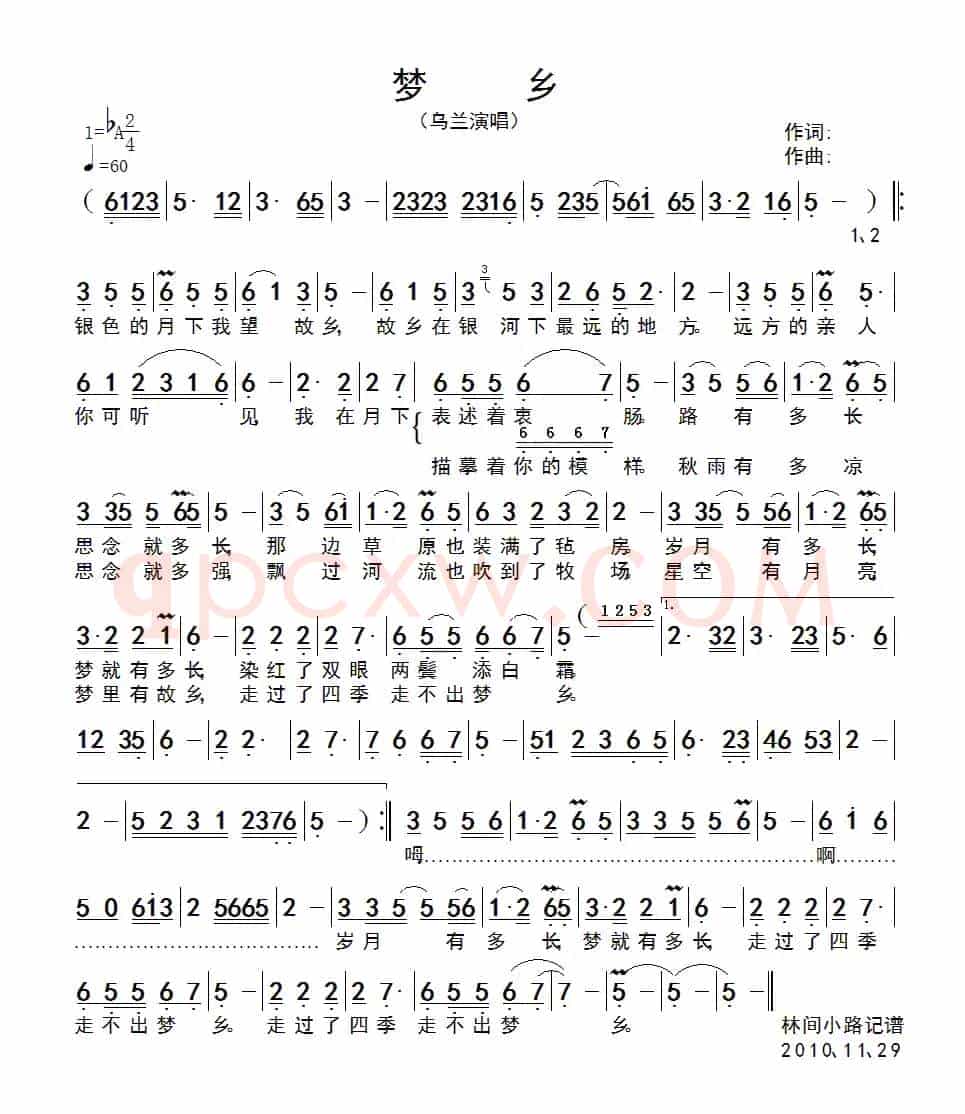 梦 乡
（乌兰演唱）
1=♭A 2/4
作词:
♩=60
作曲:
( 6123 | 5· 12 | 3· 65 | 3 － | 2323 2316 | 5 235 | 561 65 | 3·2 16 | 5 － ) ‖:
1、2
3 5 5 | 6 5 5 | 6 1 3 | 5 － | 6 1 5 | 3 3 5 3 | 2 6 5 2· | 2 － | 3 5 5 | 6 5· |
银色的月下我望 故乡, 故乡在银 河下最远的地 方。 远方的亲 人
6 1 2 3 1 6 | 6 － | 2· 2 | 2 7 | 6 5 5 6 7 | 5 － | 3 5 5 6 | 1·2 6 5 |
你可听 见, 我 在月下 表述着衷 肠。 路 有 多 长
6 6 6 7
描摹着你的模 样。 秋雨有 多 凉
3 35 5 65 | 5 － | 3 5 61 | 1·2 6 5 | 6 3 2 3 2 | 2 － | 3 35 5 56 | 1·2 65 |
思念 就多长, 那 边草 原也装满了毡 房。 岁月 有 多 长,
思念 就多强, 飘 过河 流也吹到了牧 场。 星空 有 月 亮,
qpcxw.com
( 1253 1.
3·2 2 1 | 6 － | 2 2 2 | 2 7· | 6 5 5 6 6 7 | 5 － | 2· 32 | 3· 23 | 5· 6 |
梦就有多长, 染红了双眼 两鬓 添白 霜。
梦里有故乡, 走过了四季 走不出梦 乡。
12 35 | 6 － | 2 2· | 2 7· | 7 6 6 7 | 5 － | 51 2 3 6 5 | 6· 23 | 46 53 | 2 － |
2 － | 5 2 3 1 2376 | 5 － ) :‖ 3 5 5 6 | 1·2 6 5 | 3 3 5 5 6 | 5 － | 6 1 6 |
呣……………………………………………… 啊………
5 0 613 | 2 5665 | 2 － | 3 3 5 5 56 | 1·2 65 | 3·2 2 1 | 6 － | 2 2 2 | 2 7· |
…………………………… 岁月 有 多 长, 梦就有多长, 走过了四季
6 5 5 6 7 | 5 － | 2 2 2 | 2 7· | 6 5 5 6 7 | 7 － | 5 － | 5 － | 5 － ‖
走不出梦 乡。 走过了四季 走不出梦 乡。
林间小路记谱
2010、11、29